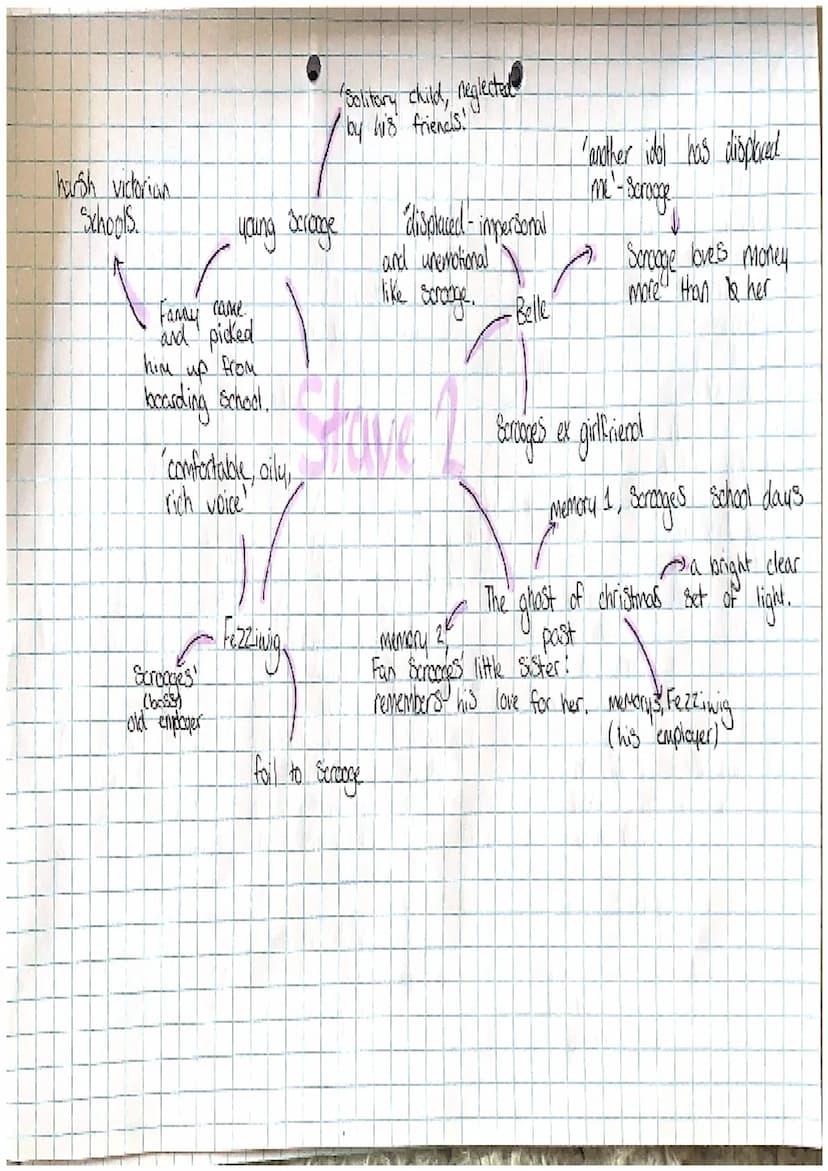 'Solitary child, neglected
by his friends.'
'another idol has displaced
me' - Scrooge
Scrooge loves money
more than her
harsh victorian
Schools.
young Scrooge
'displaced' - impersonal
and unemotional
like Scrooge.
Belle
Scrooges ex girlfriend
Fanny came
and picked
him up from
boarding school.
Stave 2
'comfortable, oily,
rich voice'
memory 1, Scrooges school days
a bright clear
set of light.
The ghost of christmas
past
memory 2,
Fan Scrooges' little sister!
remembers his love for her.
memory 3, Fezziwig
(his employer)
Fezziwig
Scrooges'
(boss)
old
foil to Scrooge